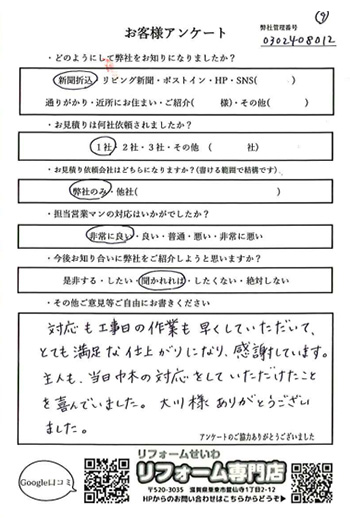 お客様アンケート
弊社管理番号
0302408012
・どのようにして弊社をお知りになりましたか？
新聞折込・リビング新聞・ポストイン・HP・SNS( )
通りがかり・近所にお住まい・ご紹介( 様)・その他( )
・お見積りは何社依頼されましたか？
1社・2社・3社・その他 ( 社)
・お見積り依頼会社はどちらになりますか？(書ける範囲で結構です)
弊社のみ・他社( )
・担当営業マンの対応はいかがでしたか？
非常に良い・良い・普通・悪い・非常に悪い
・今後お知り合いに弊社をご紹介しようと思いますか？
是非する・したい・聞かれれば・したくない・絶対しない
・その他ご意見等ご自由にお書きください
対応も工事日の作業も早くしていただいて、
とても満足な仕上がりになり、感謝しています。
主人も、当日中の対応をしていただけたこと
を喜んでいました。大川様ありがとうござい
ました。
アンケートのご協力ありがとうございました
Google口コミ
リフォームせいわ
リフォーム専門店
〒520-3035 滋賀県栗東市霊仙寺1丁目2-12
HPからのお問い合わせはこちらからどうぞ▶